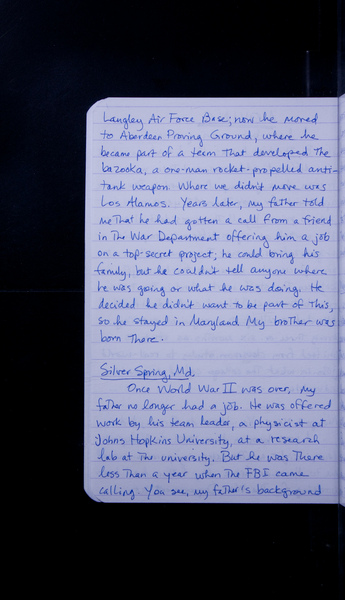 Langley Air Force Base; now he moved
to Aberdeen Proving Ground, where he
became part of a team that developed the
bazooka, a one-man rocket-propelled anti-
tank weapon. Where we didn't move was
Los Alamos. Years later, my father told
me that he had gotten a call from a friend
in the War Department offering him a job
on a top-secret project; he could bring his
family, but he couldn't tell anyone where
he was going or what he was doing. He
decided he didn't want to be part of this,
so he stayed in Maryland. My brother was
born there.
Silver Spring, Md.
Once World War II was over, my
father no longer had a job. He was offered
work by his team leader, a physicist at
Johns Hopkins University, at a research
lab at the university. But he was there
less than a year when the FBI came
calling. You see, my father's background